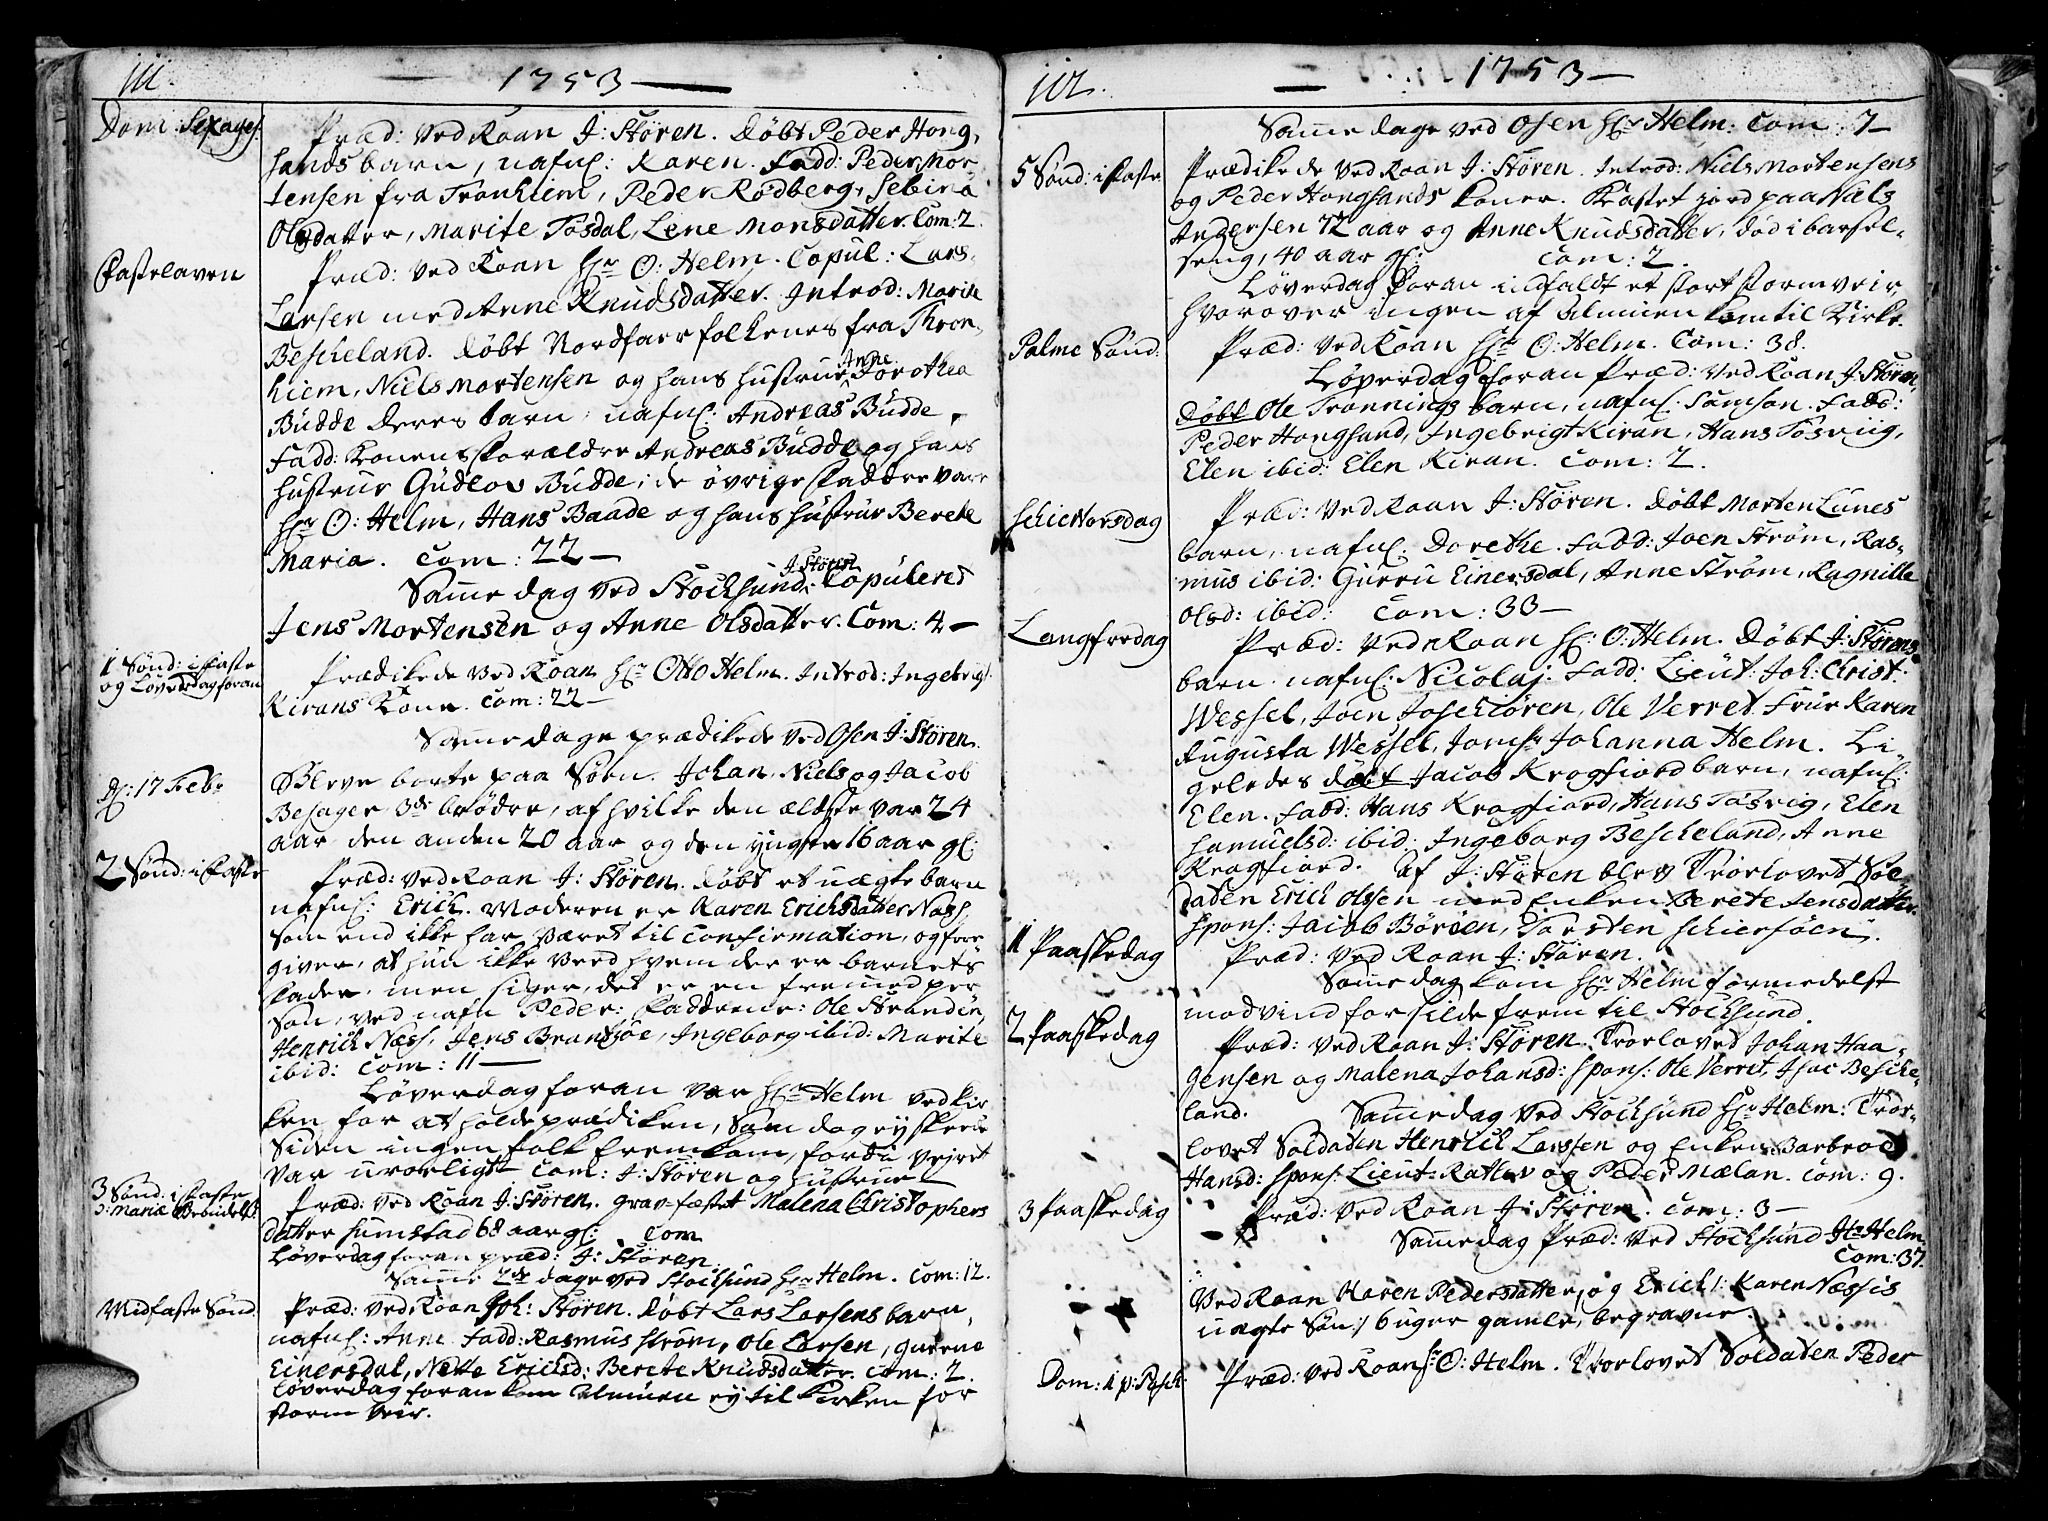 111.
1753
Dom: Sexages:
Præd: ved Roan J: Støren. Døbt Peder Hong,
sands barn, nafnl: Karen. Fadd: Peder Mor-
tensen fra Tronhiem, Peder Rødberg, Sebina
Olsdatter, Marite Tøsdal, Lene Monsdatter. Com: 2.
Fastelaven
Præd: ved Roan Hr O: Helm. Copul: Lars
Larsen med Anne Knudsdatter. Introd: Marite
Bescheland. Døbt Nordfaer folkenes fra Thron-
hiem, Niels Mortensen og hans hustrue Anne Dorothea
Budde deres barn, nafnl: Andreas Budde.
Fadd: Konens Forældre Andreas Budde og hans
hustrue Gudlov Budde; de øvrige Faddre vare
Hr O: Helm, Hans Baade og hans hustrue Berete
Maria. Com: 22 —
Samme dag ved Stocksund J: Støren Copuleret
Jens Mortensen og Anne Olsdatter. Com: 4 —
1 Sønd: i Faste
og Løverdag foran
Prædikede ved Roan Hr Otto Helm. Introd: Ingebrigt
Kirans Kone. Com: 22 —
Samme dage prædikede ved Osen J: Støren.
D: 17 Febr
Bleve borte paa Søen. Johan, Niels og Jacob
Besager 3de brødre, af hvilke den ældste var 24
aar den anden 20 aar og den yngste 16 aar gl:
2 Sønd: i Faste
Præd: ved Roan J: Støren. Døbt et uægte barn
nafnl: Erich. Moderen er Karen Erichsdatter Næss,
som end ikke har været til Confirmation, og fore
giver, at hun ikke veed hvem der er barnets
Fader, men siger, det er en fremmed per
son, ved nafn Peder: Faddrene: Ole Stranden,
Henrich Næss, Jens Brandsøe, Ingeborg ibid: Marite
ibid: Com: 11 —
Løverdag foran var Hr Helm ved kir
ken for at holde prædiken, Som dog ey skeede
Siden ingen folk fremkom, fordi vejret
var uroeligt Com: J: Støren og hustrue
3 Sønd: i Faste
Mariæ Bebudelse
Præd: ved Roan J: Støren. Grav-fæstet Malena Christophers
datter Sumstad 68 aar gl: Com
Løverdag foran præd: J: Støren.
Samme 2de dage ved Stocksund Hr Helm. Com: 12.
Midfaste Sønd:
Præd: ved Roan Joh: Støren. Døbt Lars Larsens barn,
nafnl: Anne. Fadd: Rasmus Strøm, Ole Larsen, Gurene
Einersdal, Nette Erichsd: Berete Knudsdatter. Com: 2.
Løverdag foran kom Almuen ey til Kirken for
storm veir.
112.
1753 —
Samme dage ved Osen Hr Helm: Com: 7 —
5 Sønd: i Faste
Prædikede ved Roan J: Støren. Introd: Niels Mortensens
og Peder Hongsands koner. Kastet jord paa Niels
Andersen 72 aar og Anne Knudsdatter, død i barsel-
seng, 40 aar gl: Com: 2.
Løverdag foran indfaldt et stort storm veir,
hvorover ingen af Almuen kom til Kirke.
Palme Sønd:
Præd: ved Roan Hr O: Helm. Com: 38.
Løverdag foran Præd: ved Roan J: Støren,
Døbt Ole Trønnings barn, nafnl: Samson. Fadd:
Peder Hongsand, Ingebrigt Kiran, Hans Tøsvig,
Elen ibid: Elen Kiran. Com: 2.
Schietorsdag
Præd: ved Roan J: Støren. Døbt Morten Lunes
barn, nafnl: Dorethe. Fadd: Joen Strøm, Ras-
mus ibid: Gurru Einersdal, Anne Strøm, Ragnille
Olsd: ibid: Com: 33 —
Langfredag
Præd: ved Roan Hr O: Helm. Døbt J: Størens
barn nafnl: Nicolaj. Fadd: Lieut: Joh: Christ:
Wessel, Joen Joschiören, Ole Verret. Frue Karen
Augusta Wessel, Jomfr Johanna Helm. Li-
geledes døbt Jacob Krogfiord barn, nafnl:
Elen. Fadd: Hans Krogfiord, Hans Tøsvig, Elen
Samuelsd: ibid: Ingeborg Bescheland, Anne
Krogfiord. Af J: Støren blev Trorlovet Sol
daten Erich Olssen med Enken Berete Jensdatter.
Spons: Jacob Børöen, Torsten Schiersöen.
1 Paaskedag
Præd: ved Roan J: Støren.
Samme dag kom Hr Helm formedelst
modvind for silde frem til Stocksund.
2 Paaskedag
Præd: ved Roan J: Støren. Trorlovet Johan Haa-
gensen og Malena Johansd: Spons: Ole Verret, Isac Besche-
land. Samme dag ved Stocksund Hr Helm: Tror-
lovet Soldaten Henrich Larssen og Enken Barbroe
Hansd: Spons: Lieut: Ratlev og Peder Mælan. Com: 9.
3 Paaskedag
Præd: ved Roan J: Støren. Com: 3 —
Samme dag Præd: ved Stocksund Hr Helm
Com: 37.
Ved Roan Karen Pedersdatter, og Erich /: Karen Næssis
uægte Søn :/ 6 uger gamle, begravne.
Dom: 1 p: Pasch:
Præd: ved Roan Hr O: Helm. Trorlovet Soldaten Peder